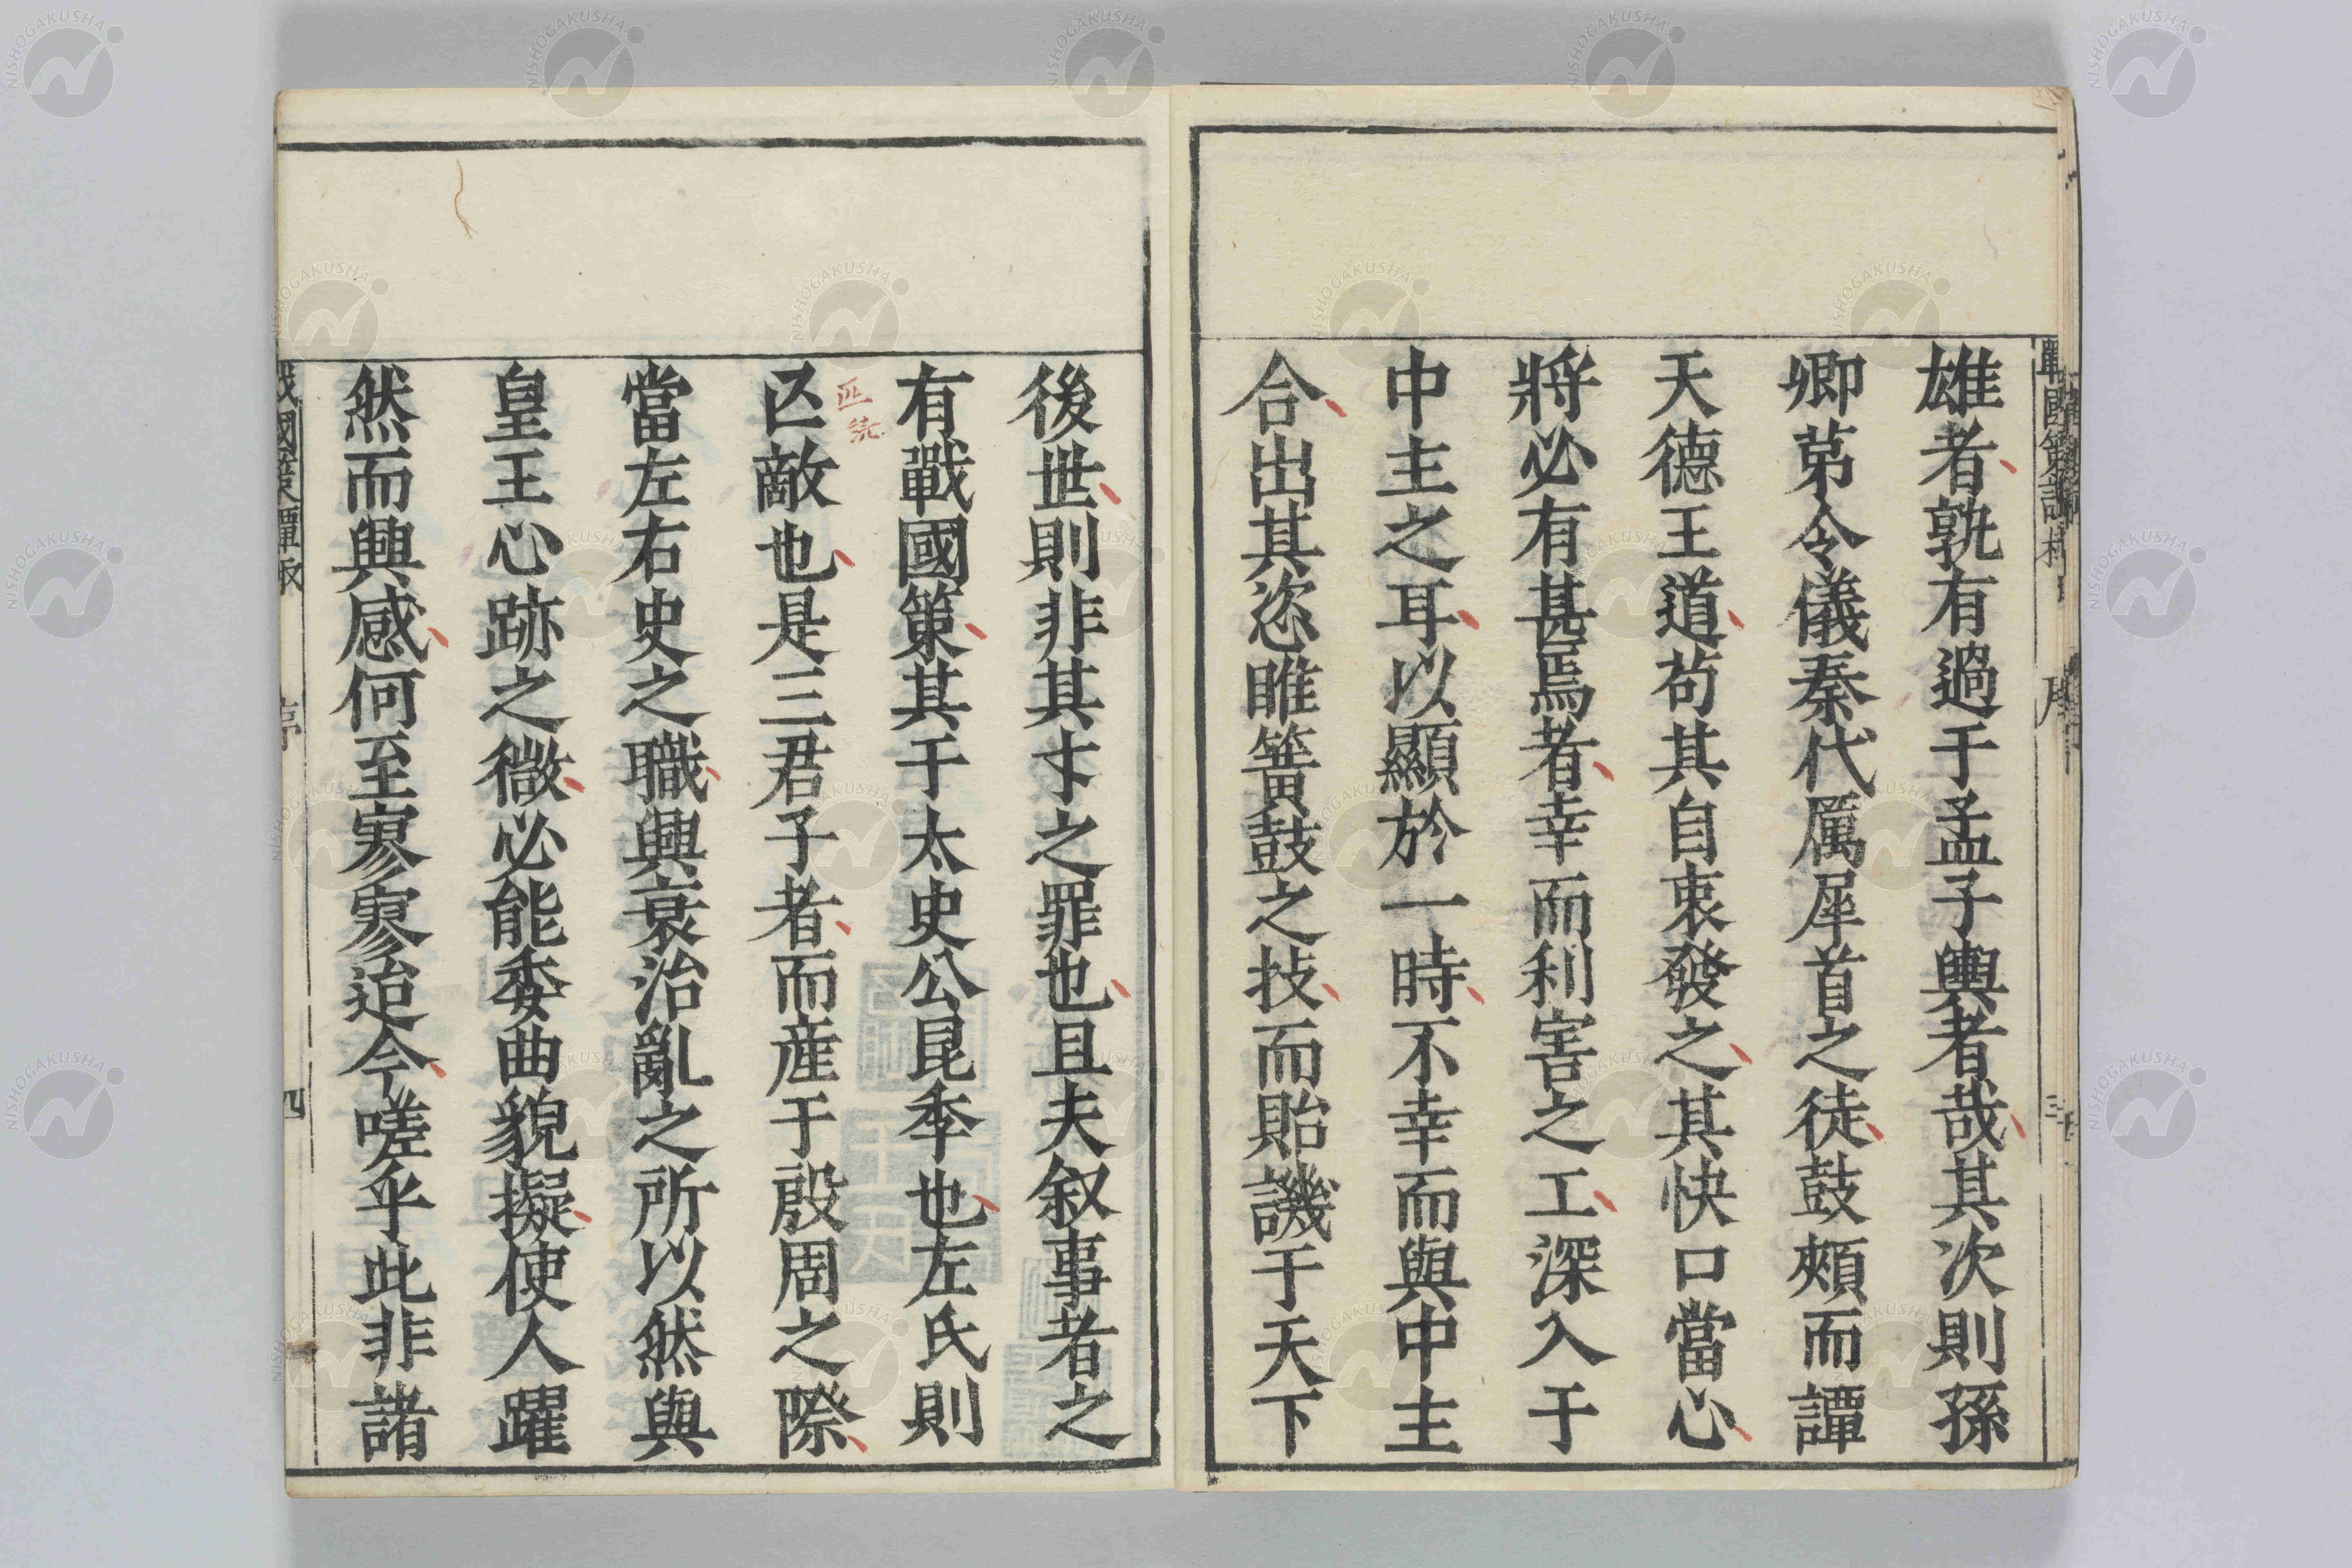 雄者孰有過于孟子輿者哉其次則孫
卿苐令儀秦代厲犀首之徒鼓頰而譚
天德王道苟其自衷發之其快口當心
將必有甚焉者幸而利害之工深入于
中主之耳以顯於一時不幸而與中主
合出其恣睢簧鼓之技而貽譏于天下
後世則非其才之罪也且夫叙事者之
有戰國策其于太史公昆季也左氏則
匹敵也是三君子者而産于殷周之際
當左右史之職興衰治亂之所以然與
皇王心跡之微必能委曲貌擬使人躍
然而興感何至寥寥迨今嗟乎此非諸
戰國策譚棷
序
四
NISHOGAKUSHA